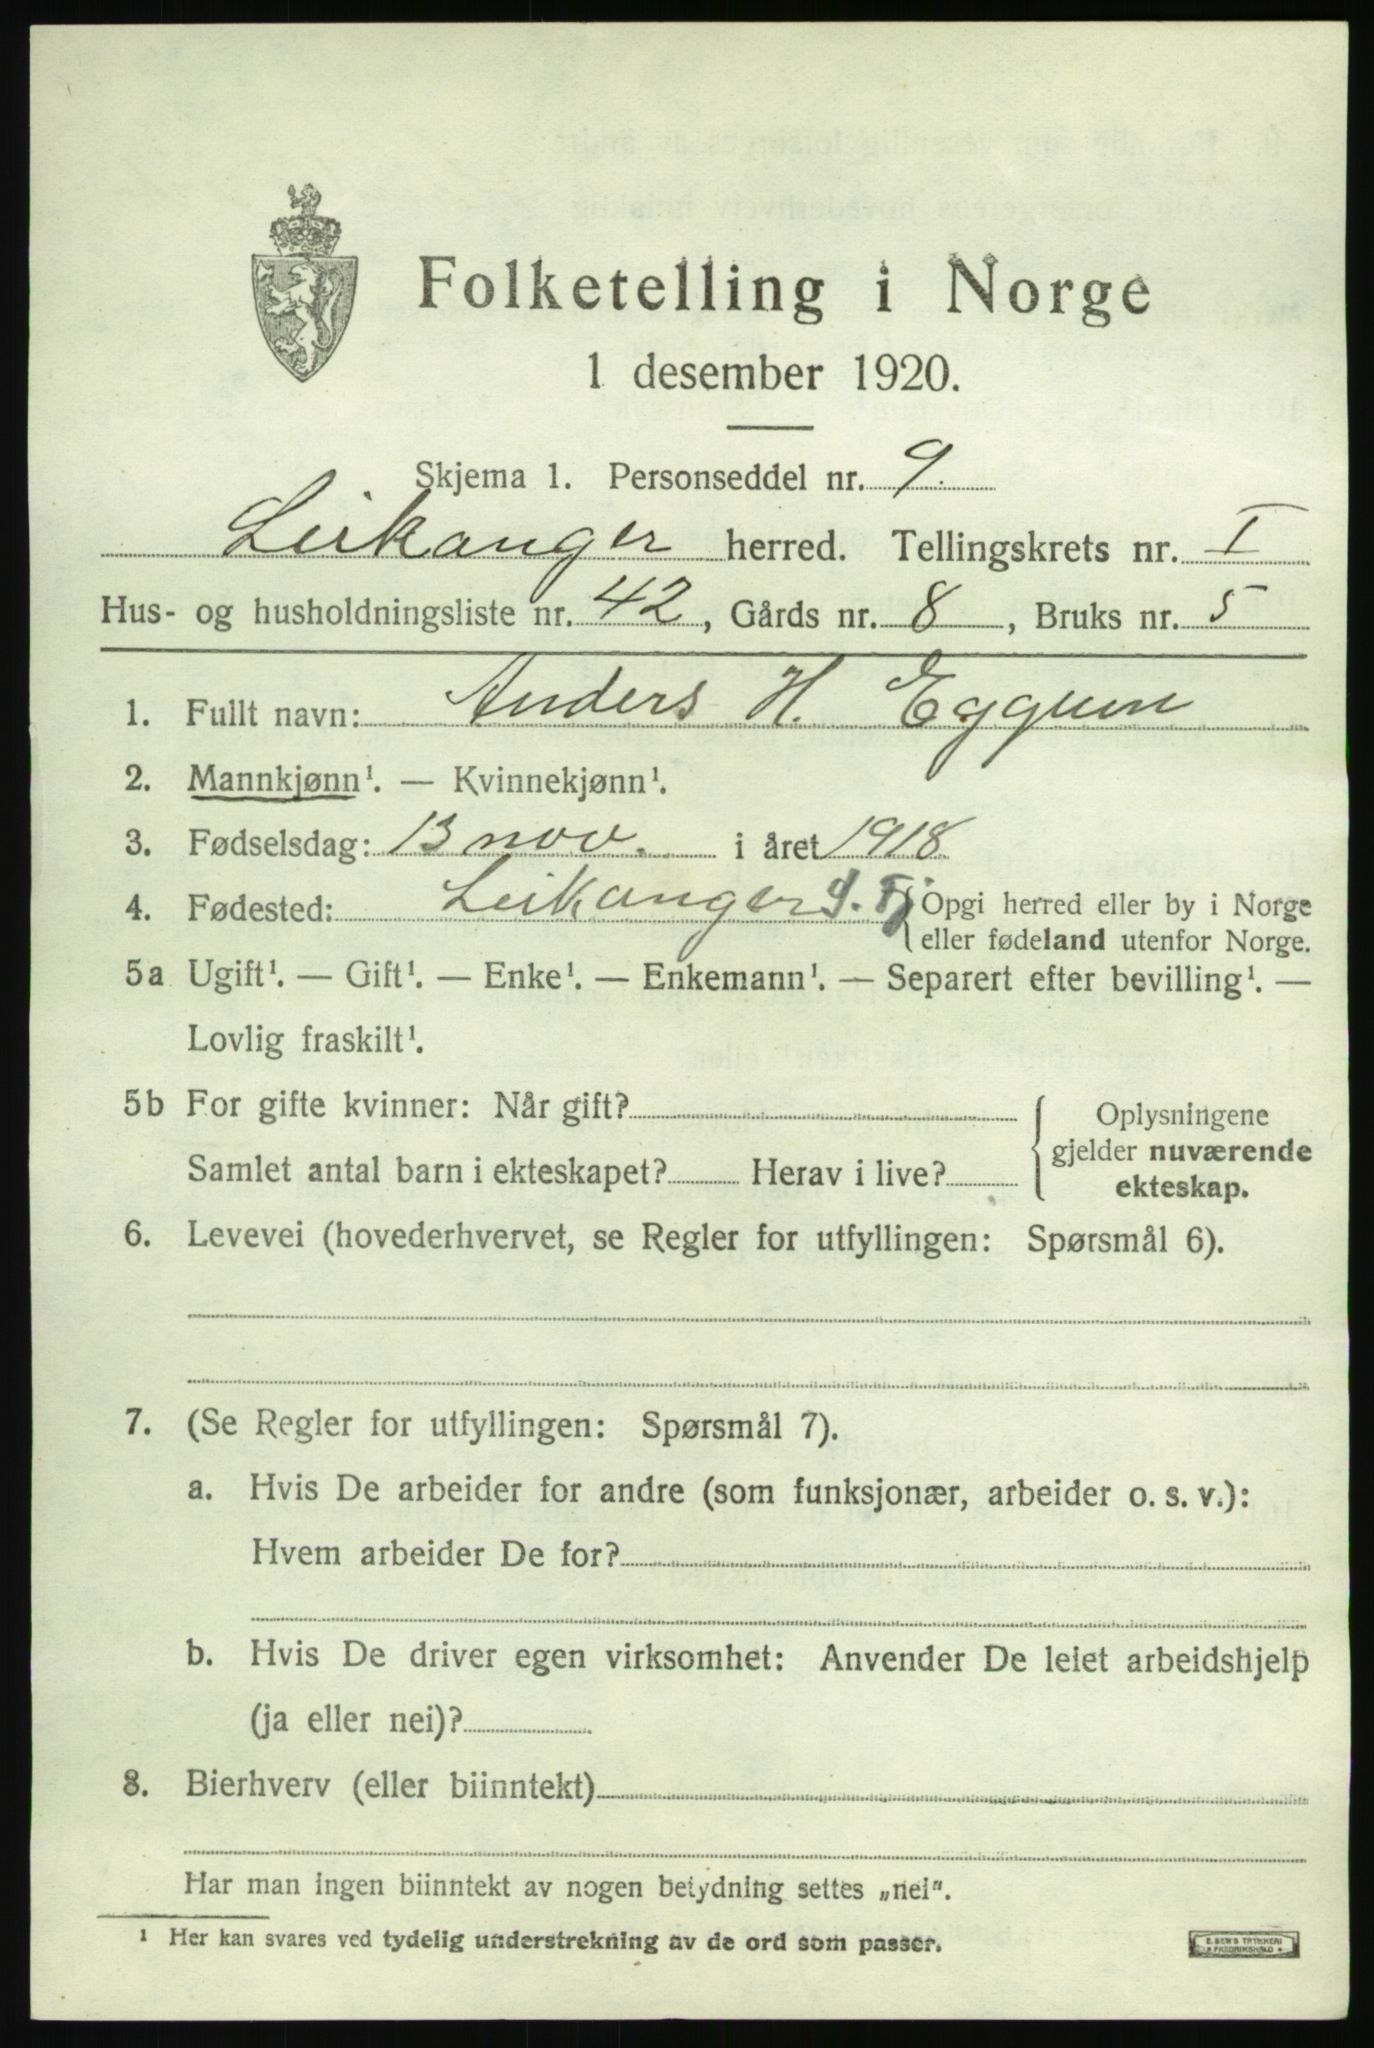 Folketelling i Norge
1 desember 1920.
Skjema 1. Personseddel nr. 9.
Leikanger herred. Tellingskrets nr. I
Hus- og husholdningsliste nr. 42, Gårds nr. 8, Bruks nr. 5
1. Fullt navn: Anders H. Eggum
2. Mannkjønn¹. — Kvinnekjønn¹.
3. Fødselsdag: 13 nov. i året 1918
4. Fødested: Leikanger S. Fj. { Opgi herred eller by i Norge
eller fødeland utenfor Norge.
5a Ugift¹. — Gift¹. — Enke¹. — Enkemann¹. — Separert efter bevilling¹. —
Lovlig fraskilt¹.
5b For gifte kvinner: Når gift?
Samlet antal barn i ekteskapet? Herav i live?
{ Oplysningene
gjelder nuværende
ekteskap.
6. Levevei (hovederhvervet, se Regler for utfyllingen: Spørsmål 6).
7. (Se Regler for utfyllingen: Spørsmål 7).
a. Hvis De arbeider for andre (som funksjonær, arbeider o. s. v.):
Hvem arbeider De for?
b. Hvis De driver egen virksomhet: Anvender De leiet arbeidshjelp
(ja eller nei)?
8. Bierhverv (eller biinntekt)
Har man ingen biinntekt av nogen betydning settes „nei".
¹ Her kan svares ved tydelig understrekning av de ord som passer.
E. SEM'S TRYKKERI
FREDRIKSHALD